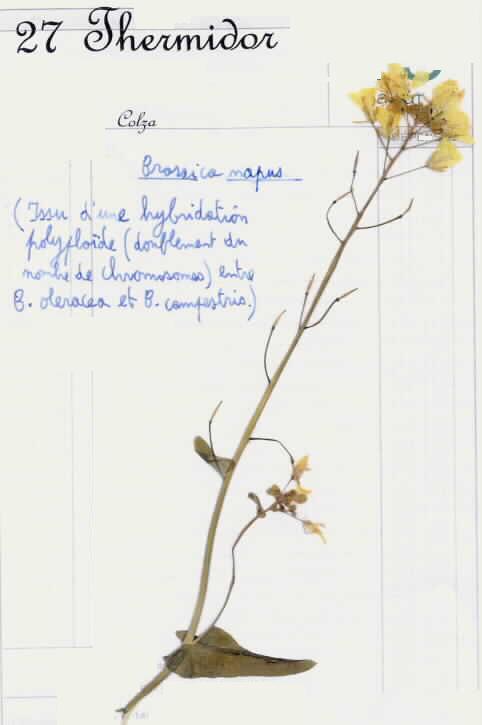 27 Thermidor
Colza
Brassica napus
(Issu d'une hybridation
polyploïde (doublement du
nombre de chromosomes) entre
B. oleracea et B. campestris.)